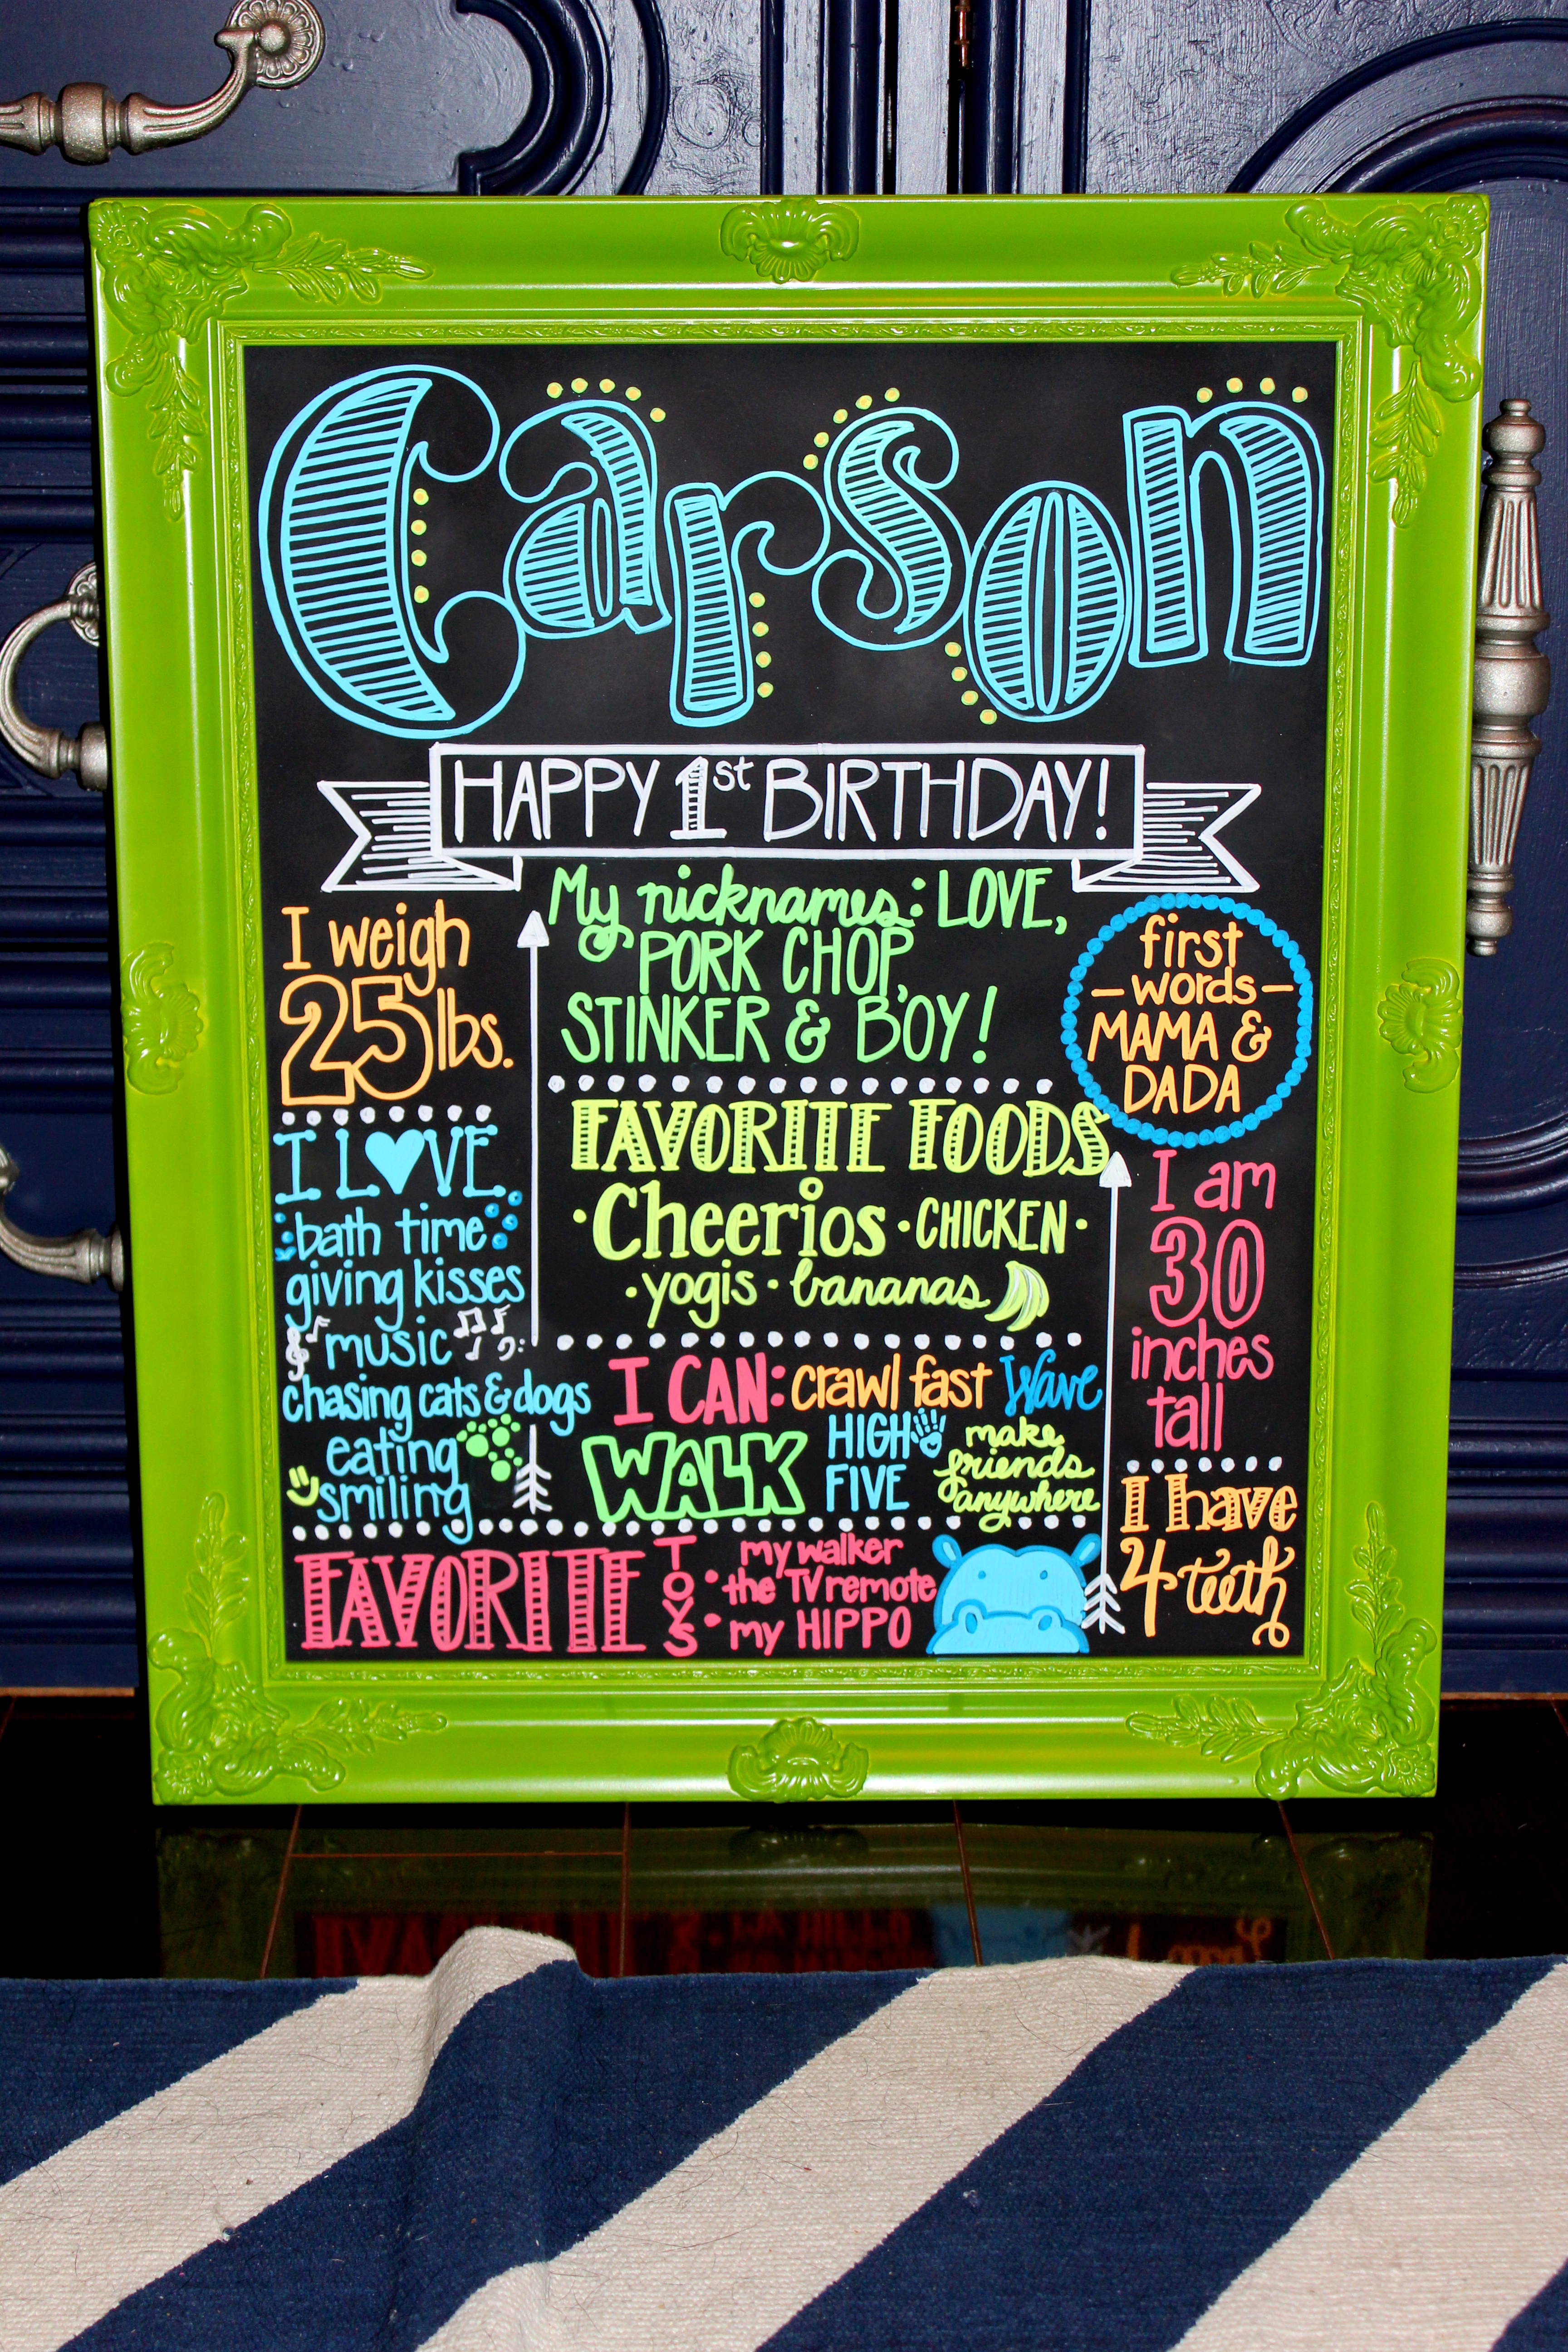 Carson
HAPPY 1st BIRTHDAY!
I weigh
25 lbs.
My nicknames: LOVE,
PORK CHOP,
STINKER & B'OY!
first
-words-
MAMA &
DADA
I LOVE
bath time
giving kisses
music
chasing cats & dogs
eating
smiling
FAVORITE FOODS
·Cheerios·CHICKEN·
·yogis·bananas
I am
30
inches
tall
I CAN: crawl fast Wave
WALK
HIGH
FIVE
make
friends
anywhere
I have
4 teeth
FAVORITE TOYS
my walker
•the TV remote
•my HIPPO